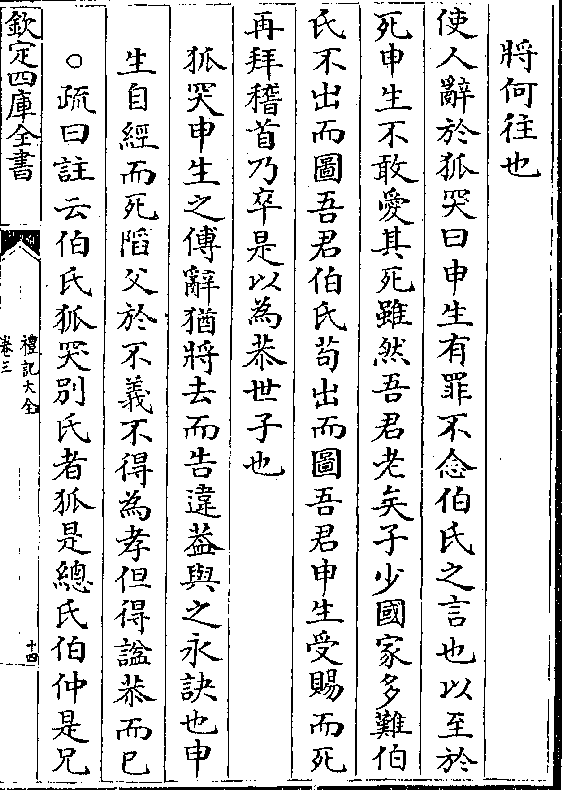 將何徃也
使人辭於狐突曰申生有罪不念伯氏之言也以至於
死申生不敢愛其死雖然吾君老矣子少國家多難伯
氏不出而圖吾君伯氏苟出而圖吾君申生受賜而死
再拜稽首乃卒是以為恭世子也
狐突申生之傅辭猶將去而告違葢與之永訣也申
生自經而死陷父於不義不得為孝但得諡恭而已
○疏曰註云伯氏狐突别氏者狐是總氏伯仲是兄
欽定四庫全書
禮記大全
卷三
十四